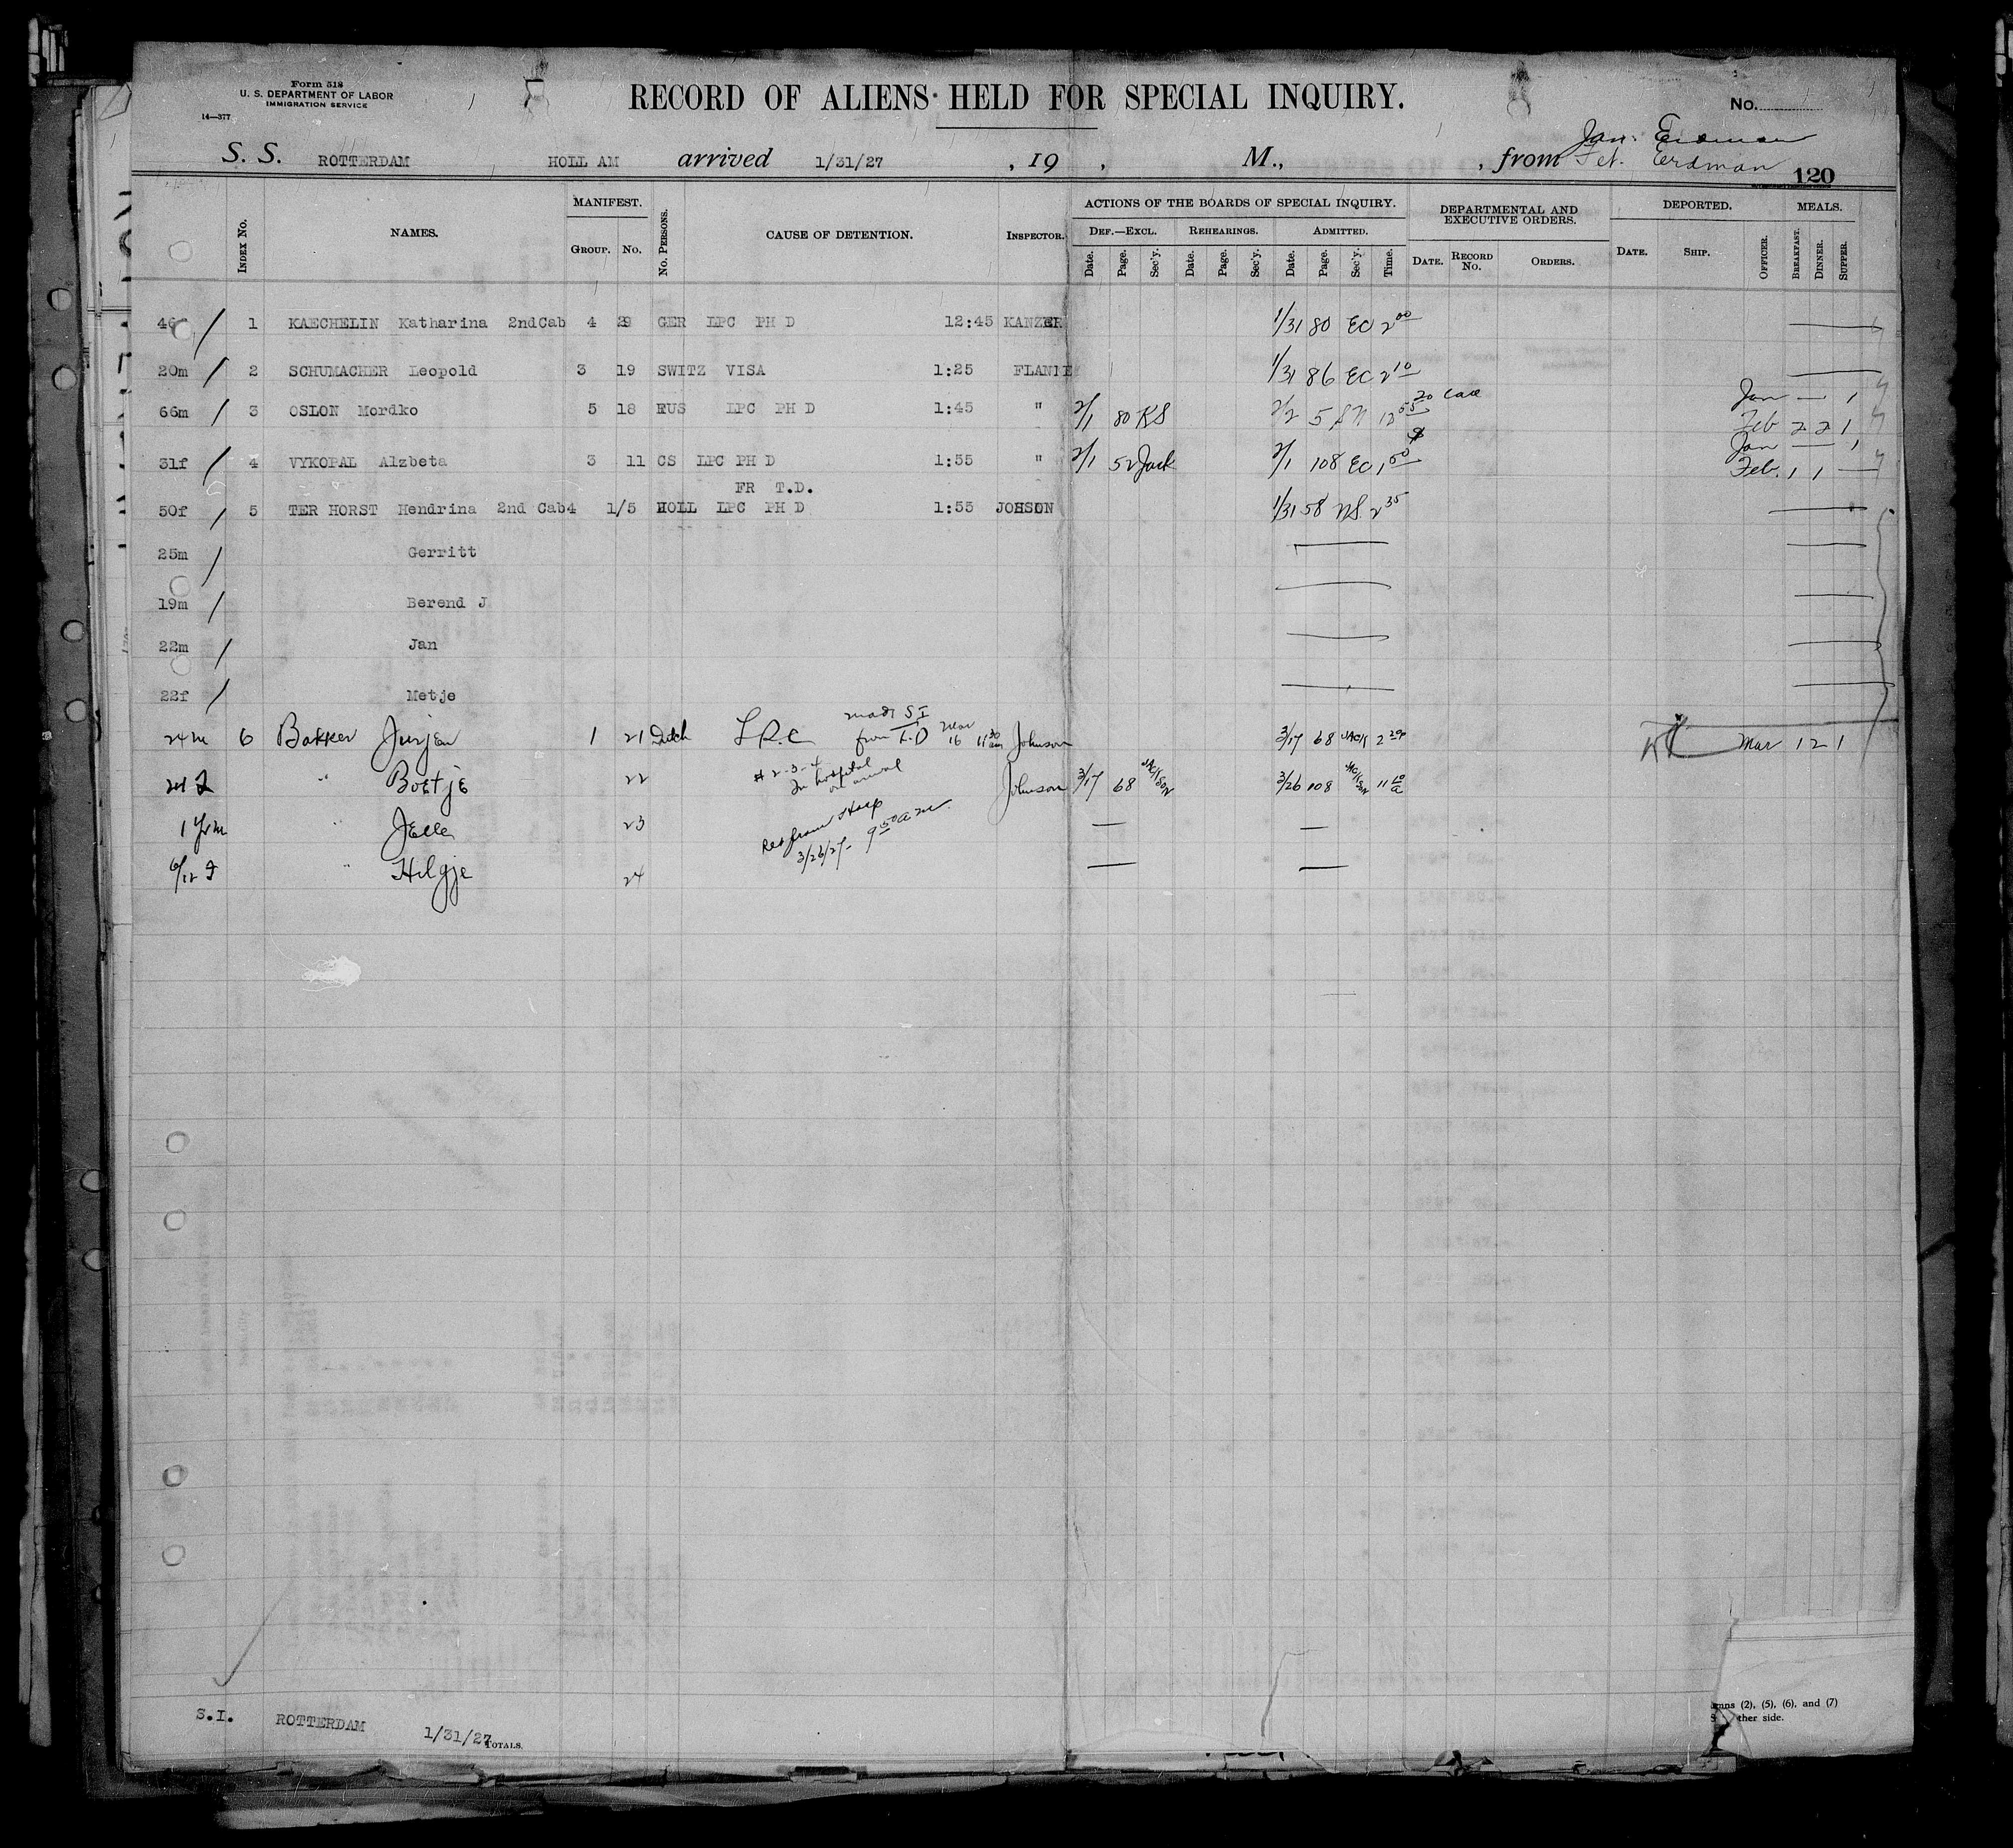 Form 518
U. S. DEPARTMENT OF LABOR
IMMIGRATION SERVICE
14—377
RECORD OF ALIENS HELD FOR SPECIAL INQUIRY.
No.
S. S. ROTTERDAM HOLL AM arrived 1/31/27 , 19 , M., , from
Jan. Erdman
Feb. Erdman
120
INDEX No. NAMES. MANIFEST. GROUP. No. No. PERSONS. CAUSE OF DETENTION. INSPECTOR.
ACTIONS OF THE BOARDS OF SPECIAL INQUIRY. DEF.—EXCL. REHEARINGS. ADMITTED.
Date. Page. Sec'y. Date. Page. Sec'y. Date. Page. Sec'y. Time.
DEPARTMENTAL AND EXECUTIVE ORDERS. DATE. RECORD No. ORDERS.
DEPORTED. DATE. SHIP. OFFICER. MEALS. BREAKFAST. DINNER. SUPPER.
/ 1 KAECHELIN Katharina 2ndCab 4 GER LPC PH D 12:45 KANZER 1/31 80 EC 2 00
20m / 2 SCHUMACHER Leopold 3 19 SWITZ VISA 1:25 1/31 86 EC 2 10
66m / 3 OSLON Mordko 5 18 RUS LPC PH D 1:45 " 2/1 80 KS 2/2 5 12 55 Jan — 1
Feb 2 2 1
31f / 4 VYKOPAL Alzbeta 3 11 CS LPC PH D 1:55 " 2/1 52 Jack 2/1 108 EC 1 50 Jan — 1
Feb. 1 1 —
FR T.D.
50f / 5 TER HORST Hendrina 2nd Cab4 1/5 HOLL LPC PH D 1:55 1/31 58 2 35
25m / Gerritt
19m / Berend J
22m / Jan
22f / Metje
24m 6 Bakker Jurjen 1 21 Dutch L.P.C made S I from T.D Mar 16 11 30 am Johnson 3/17 68 JACK 2 20 Mar 1 2 1
24 f " Boetje 22 # 2-3-4 In hospital on arrival Johnson 3/17 68 JACKSON 3/26 108 JACKSON 11 10 a
1 yr m " Jelle 23 Ret from Hosp — —
6/12 f " Hilgje 24 3/26/27 - 9 50 a m — —
S.I. ROTTERDAM 1/31/27
TOTALS.
(2), (5), (6), and (7)
side.